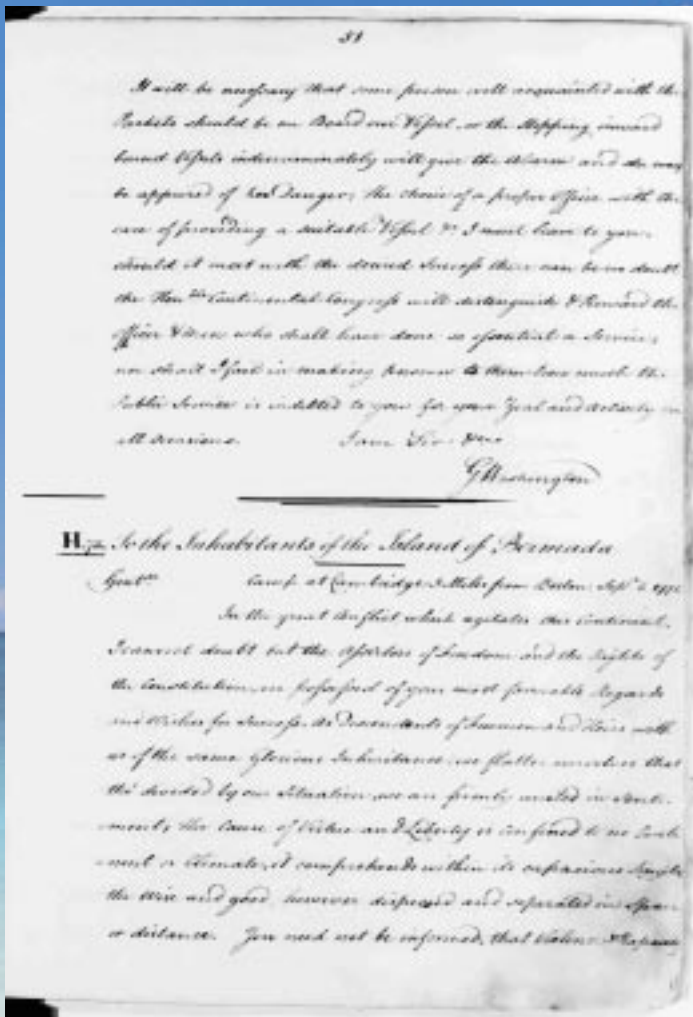 51
It will be necessary that some person well acquainted with the
Packets should be on Board our Vessel, or the Stopping inward
bound Vessels indiscriminately will give the Alarm and she may
be apprized of her Danger; the choice of a proper Officer with the
care of providing a suitable Vessel &c I must leave to you.
should it meet with the desired Success there can be no doubt
the Honble Continental Congress will distinguish & Reward the
Officer & Men who shall have done so essential a Service;
nor shall I fail in making known to them how much the
Public Service is indebted to you for your Zeal and Activity on
all Occasions. I am Sir &ca
GWashington
H. To the Inhabitants of the Island of Bermuda
Gentn Camp at Cambridge 3 Miles from Boston Sept 6
In the great Conflict which agitates this Continent,
I cannot doubt but the Assertors of Freedom and the Rights of
the Constitution, are possessed of your most favorable Regards
and Wishes for Success. As Descendants of Freemen and Heirs with
us of the same Glorious Inheritance, we flatter ourselves that
tho' divided by our Situation we are firmly united in Senti-
ment; the Cause of Virtue and Liberty is confined to no Conti-
nent or Climate, it comprehends within its capacious Limits
the Wise and good, however dispersed and separated in Space
or distance. You need not be informed, that Violence & Rapacity